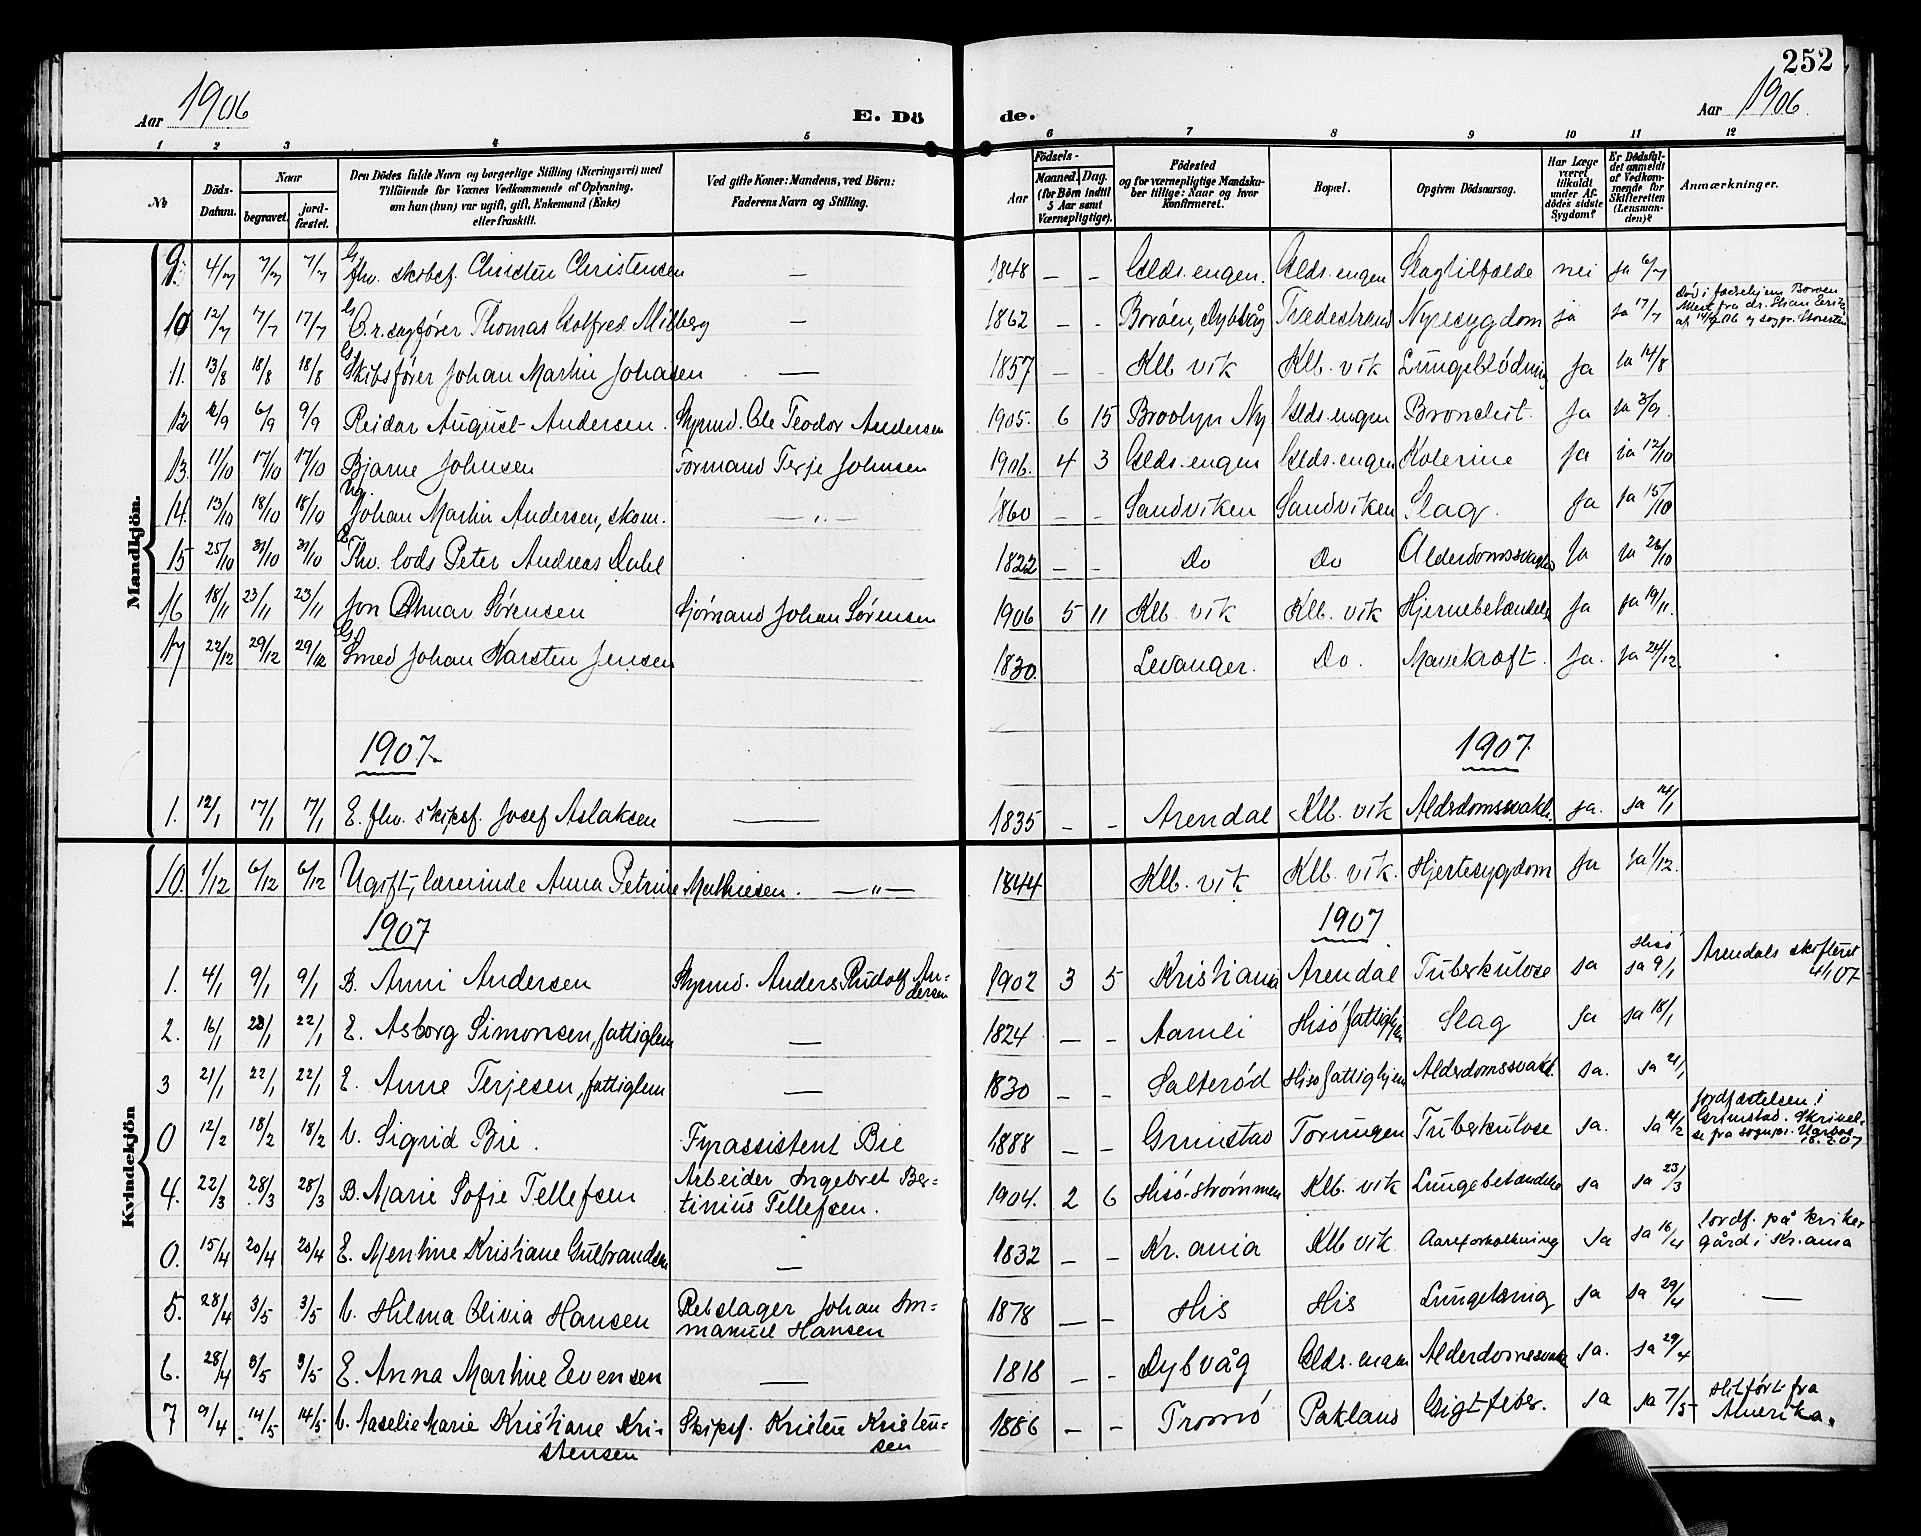 252
Aar 1906 E. Dö de. Aar 1906.
1 2 3 4 5 6 7 8 9 10 11 12
№ Döds-Datum. Naar begravet. jord-fæstet. Den Dödes fulde Navn og borgerlige Stilling (Næringsvei) med Tilföiende for Voxnes Vedkommende af Oplysning, om han (hun) var ugift, gift, Enkemand (Enke) eller fraskilt. Ved gifte Koner: Mandens, ved Börn: Faderens Navn og Stilling. Födsels- Aar Maaned. Dag. (for Börn indtil 5 Aar samt Værnepligtige). Födested og for værnepligtige Mandska-ber tillige: Naar og hvor Konfirmeret. Bopæl. Opgiven Dödsaarsag. Har Læge været tilkaldt under Af-dödes sidste Sygdom? Er Dödsfal-det anmeldt af Vedkom-mende for Skifteretten (Lensman-den)? Anmærkninger.
Mandkjön.
9. 4/7 7/7 7/7 G fhv. skibsf. Christen Christensen — 1848 — - Glds. engen. Glds. engen Slagtilfælde nei ja 6/7
10 12/7 17/7 17/7 G O.r.sagfører Thomas — 1862 - - Borøen, Dybvåg Tvedestrand Nyresygdom ja ja 17/7
11. 13/8 18/8 18/8 G Skibsfører Johan Martin Johansen — 1857 - - Klb. vik Klb. vik Lungeblødning ja ja 14/8
12 2/9 6/9 9/9 Reidar August Andersen. Skpmd. Ole Teodor Andersen 1905. 6 15 Broolyn Ny Glds. engen Bronchit. ja ja 3/9.
13. 11/10 17/10 17/10 Bjarne Johnsen Formand Terje Johnsen 1906. 4 3 Glds. engen Glds. engen Kolerine ja ja 12/10
14. 13/10 18/10 18/10 Ug. Johan Martin Andersen, skom. — " — 1860 - - Sandviken Sandviken Slag. ja ja 15/10
15 25/10 31/10 31/10 E Fhv. lods Peter Andreas Dahl 1822 — - Do Do Alderdomssvakhed ja ja 26/10
16 18/11 23/11 23/11 Jon Sørensen Sjømand Johan Sørensen 1906 5 11 Klb. vik Klb. vik Hjernebetændelse ja ja 19/11.
17 22/12 29/12 29/12 G Smed Johan Karsten Jensen 1830. Levanger. Do. Mavekræft. ja. ja 24/12.
1907. 1907.
1. 12/1 17/1 17/1 E. fhv. skipsf. Josef Aslaksen — 1835 — - Arendal Klb. vik Alderdomssvakh. ja. ja 14/1
Kvindekjön
10. 1/12 6/12 6/12 Ugift, lærerinde Anna Petrine Mathiesen. — " — 1844 Klb. vik Klb. vik. Hjertesygdom ja ja 1/12.
1907 1907
1. 4/1 9/1 9/1 B. Anni Andersen Skpmd. Anders Rudolf An-dersen 1902 3 5 Kristiania Arendal Tuberkulose ja Hisö ja 9/1 Arendals skifteret 4/1 07
2. 16/1 22/1 22/1 E. Asborg Simonsen, fattiglem — 1824 — - Aamli Hisö fattighjem Slag ja ja 18/1
3 21/1 22/1 22/1 E. Anne Terjesen, fattiglem — 1830 — - Salterød Hisö fattighjem Alderdomssvakh. ja. ja 21/1
0 12/2 18/2 18/2 U. Sigrid Bie. Fyrassistent Bie 1888 — - Grimstad Torungen Tuberkulose ja. ja 14/2 Jordfæstelsen i Grimstad. Skrivel-se fra sognpr. 18.2.07
4. 22/3 28/3 28/3 B. Marie Sofie Tellefsen Arbeider Ingebret Ber-tinius Tellefsen. 1904. 2 6 Hisö-Strømmen Klb. vik Lungebetændelse ja ja 23/3
0. 15/4 20/4 20/4 E. Mentine Kristiane Gulbrandsen — 1832 — - Kr.ania Klb. vik Aareforkalkning ja ja 16/4 Jordf. på kirke-gård i Kr.ania
5. 28/4 3/5 3/5 U. Hilma Olivia Hansen Rebslager Johan Im-manuel Hansen 1878 — - His His ja ja 29/4 —
6. 28/4 3/5 3/5 E. Anna Martine Evensen — 1818 - - Dybvåg Glds. engen Alderdomssvakh. ja. ja 29/4
7 9/4 14/5 14/5 U. Aaselie Marie Kristiane Kri-stensen Skipsf. Kristen Kristen-sen 1886 — - Tromö Gigtfeber. ja ja 7/5 Hitført fra Amerika.